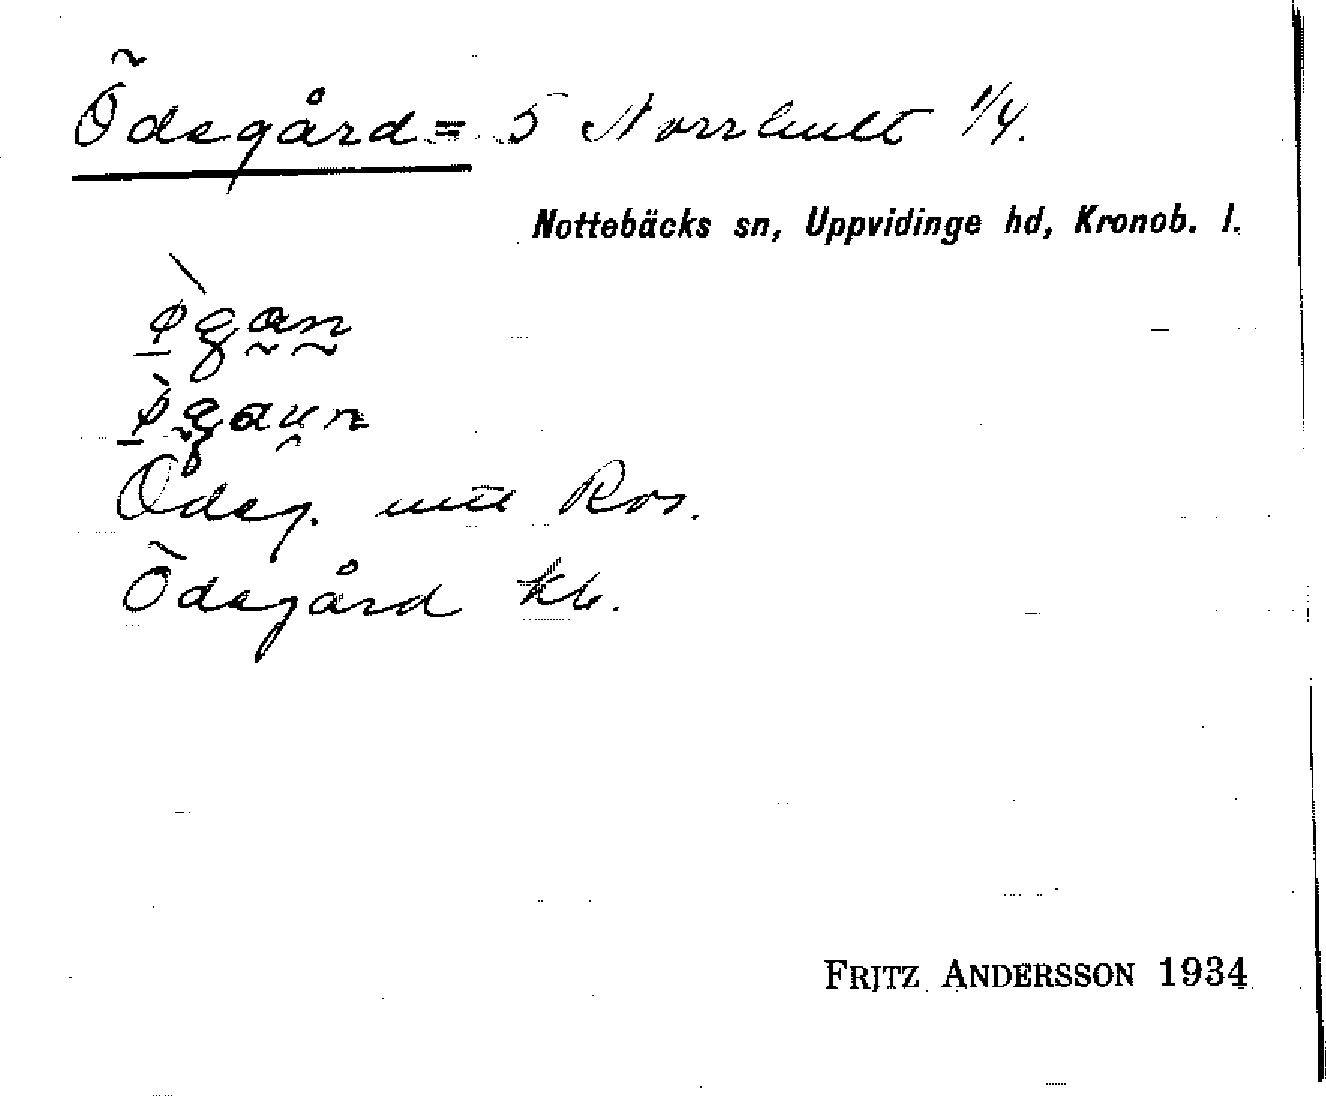 Ödegård = 5 Norrhult 1/4.
Nottebäcks sn, Uppvidinge hd, Kronob. l.
Ödeg. utt Ros.
Ödegård kb.
FRITZ ANDERSSON 1934